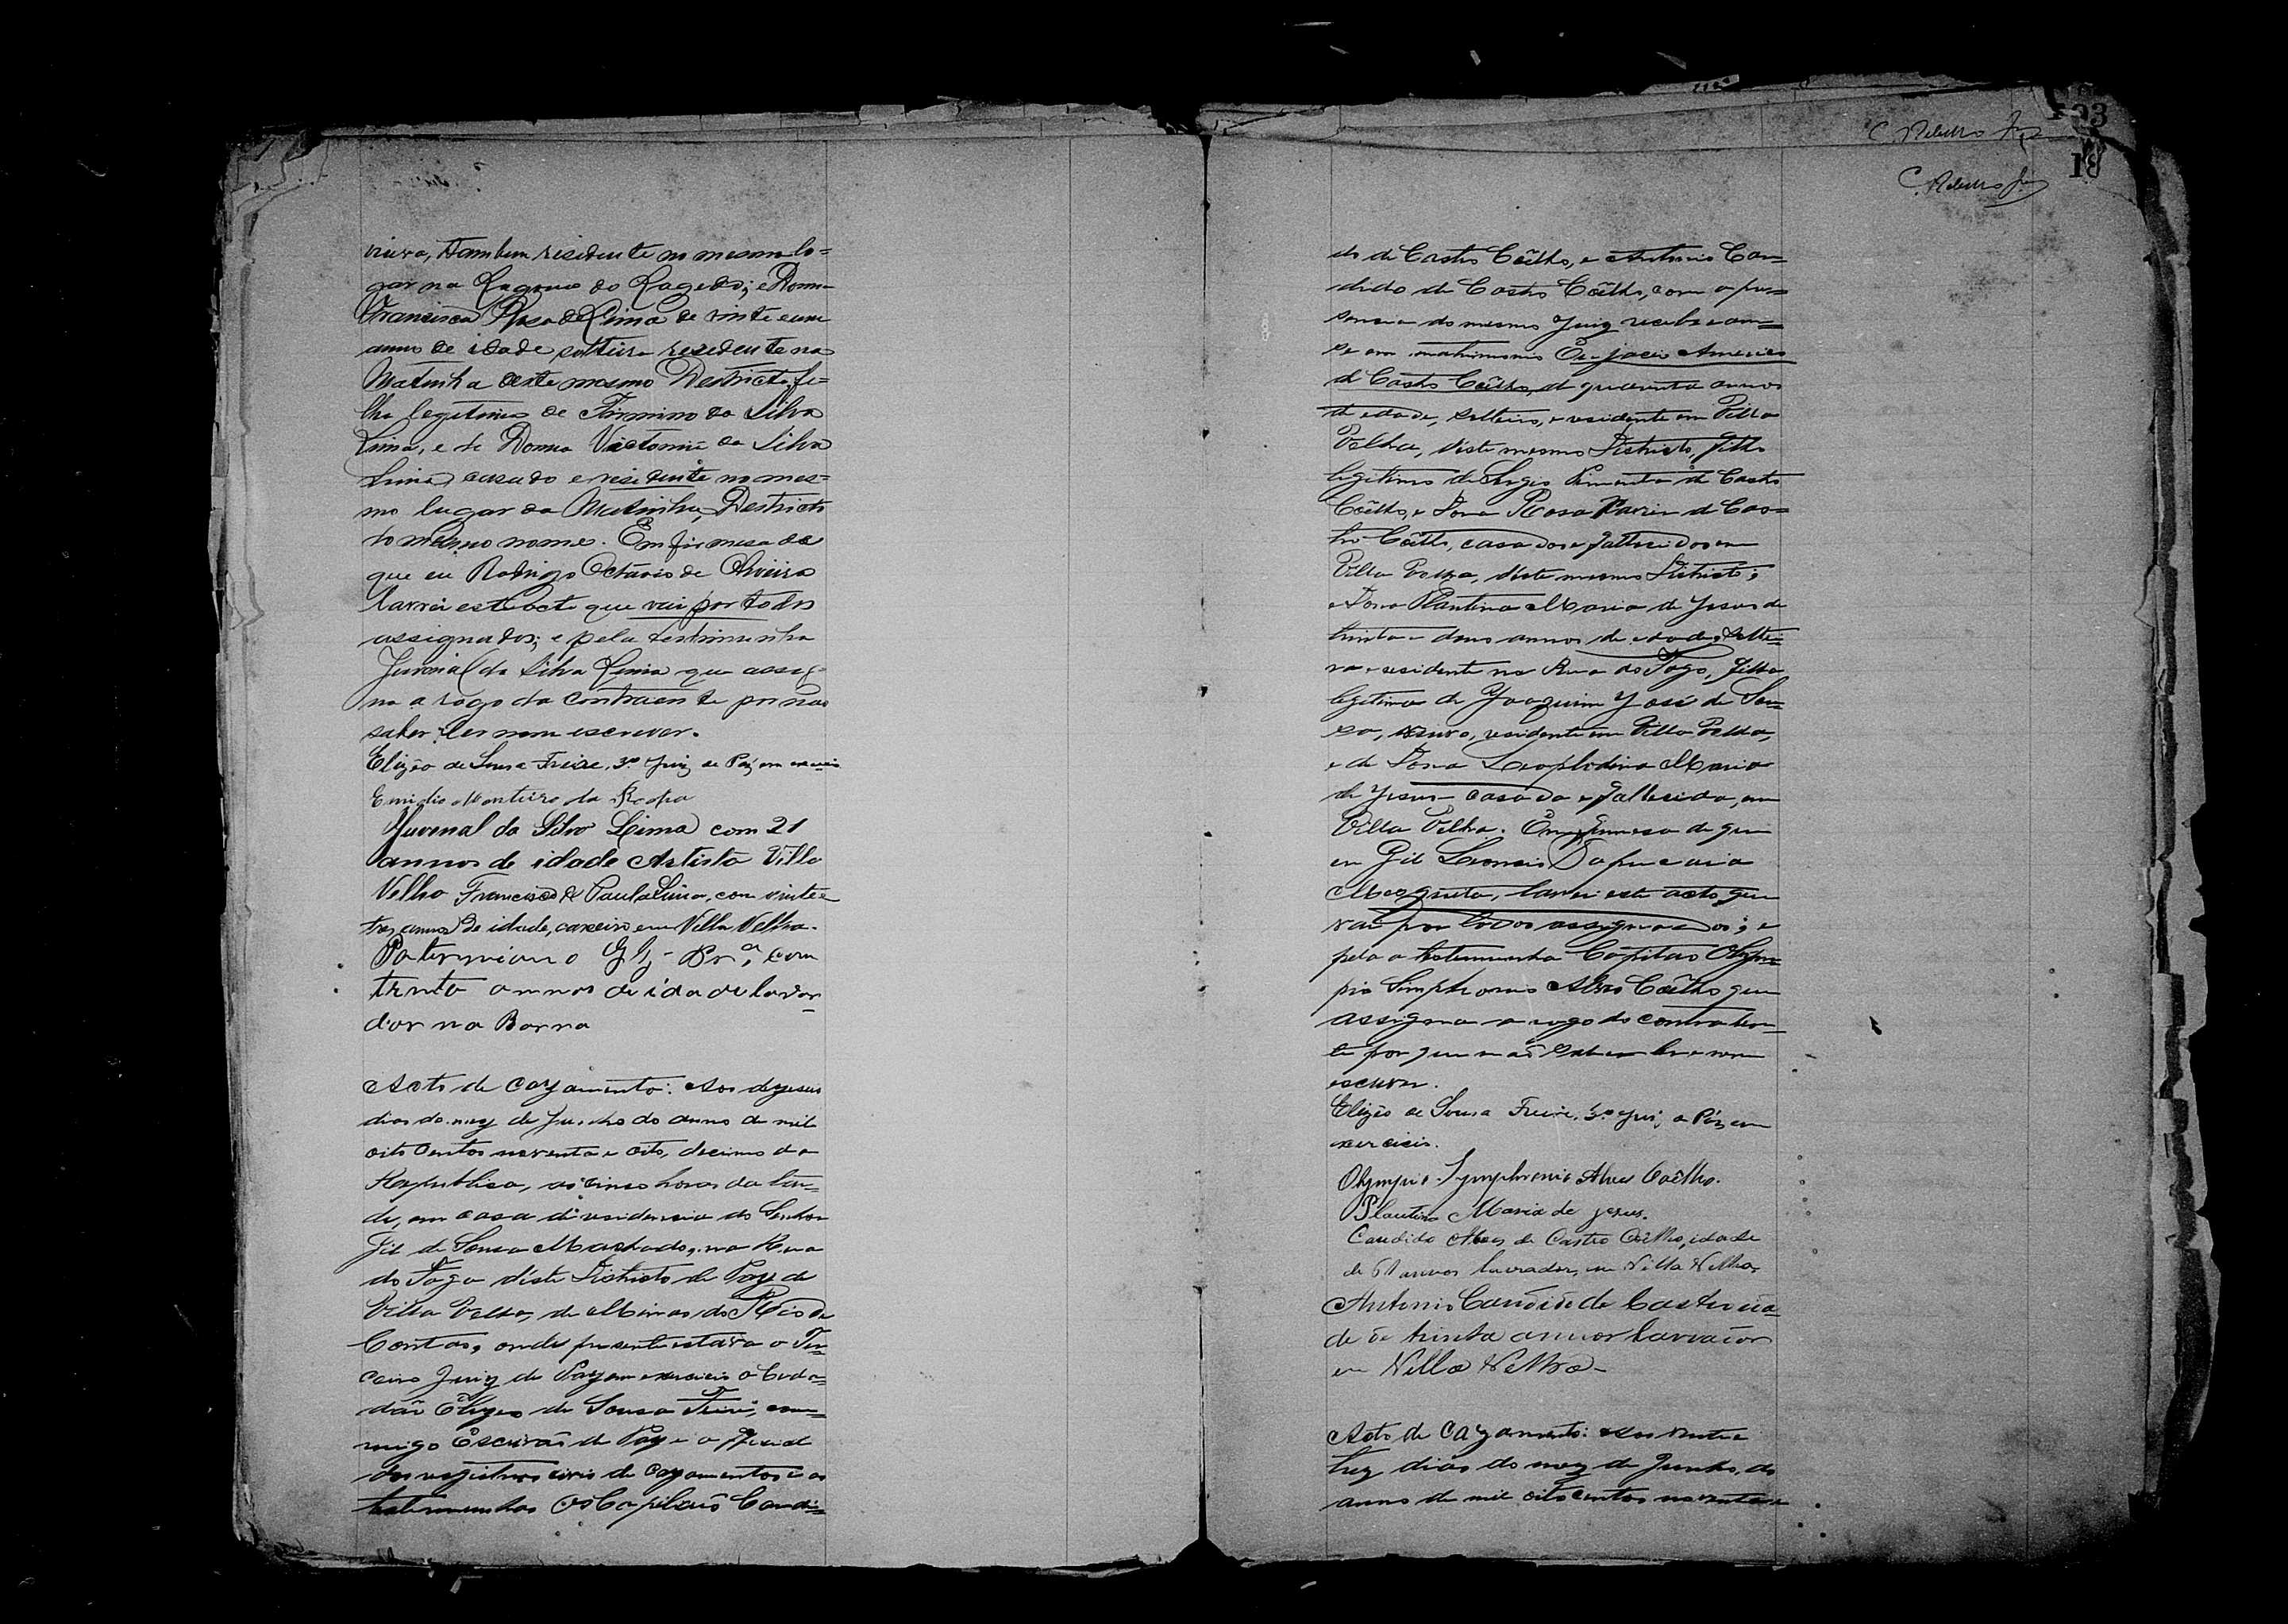 viuva, tambem residente no mesmo lo=
gar na Lagoua do Lagedo; e Donna
Francisca Rosa de Lima de vinte e um
annos de idade solteira residente na
Matinha deste mesmo Destricto, fi=
lha legitima de Firmino da Silva
Lima, e de Donna Victorina da Silva
Lima casado e residente no mes=
mo lugar da Matinha, Destricto
do mesmo nome. Em firmesa de
que eu Rodrigo Octavio de Oliveira
lavrei este acto que vai por todos
assignados; e pela testimunha
Juvenal da Silva Lima que assig=
na a rogo da contraente por não
saber ler nem escrever.
Elizeo de Sousa Freire, 3º Juiz de Paz em
Emidio Monteiro da Rocha
Juvenal da Silva Lima com 21
annos de idade Artista Villa
Velha Francisco de Paula Lima, com vinte e
tres annos de idade, caxeiro em Villa Velha.
Paterniano com
trinta annos de idade lavra-
dor na Barra
Acto de cazamento: Aos dezeseis
dias do mez de Junho do anno de mil
oito centos noventa e oito, decimo da
Republica, as cinco horas da tar=
de, em casa di residencia do Senhor
Gil de Sousa Machado, na Rua
do Fogo déste Districto de Paz de
Villa Velha, de Minas do Rio de
Contas, onde presente estava o Ter=
ceiro Juiz de Paz em exercicio o Cida=
dão Elizeo de Sousa Freire, com=
migo Escrivão de Paz e o
dos registros civis de cazamentos e as
testimunhas Os Capitães Candi=
C. Rebello Jor
C. Rebello Jor
18
do de Castro Coêlho, e Antonio Can=
dido de Castro Coêlho, com a pre=
sença do mesmo Juiz receberam=
se em matrimonio Americo
de Castro Coêlho, de quarenta annos
de edade, solteiro, e residente em Villa
Velha, déste mesmo Districto, filho
legitimo de Sergio Pimenta de Castro
Coêlho, e Dona Rosa de Cas=
tro Coêlho, casados e fallecidos em
Villa Velha, déste mesmo Districto;
e Dona Plautina Maria de Jesus de
trinta e dous annos de edade, soltei=
ra e residente na Rua do Fogo, filha
legitima de Joaquim José de Sou=
sa, viuvo, residente em Villa Velha,
e de Dona Leoploldina Maria
de Jesus casada e fallecida, em
Villa Velha. Em firmesa de que
eu Gil Leoncio Sapucaia
Mesquita, lavrei este acto que
vai por todos assignados; e
pela a testemunha Capitão Olym=
pio Simphronio Alves Coêlho que
assigna a rogo do contrahen=
te por que não saber ler e nem
escrever.
Elizeo de Sousa Freire, 3º Juiz de Paz em
exercicio.
Olympio Symphronio Alves Coêlho.
Plautina Maria de Jesus.
Candido Alves de Castro Coêlho, idade
de 61 annos lavrador, em Villa Velha,
Antonio Candido de Castro ida=
de de trinta annos lavrador
em Villa Velha
Acto de Cazamento: Aos vinte e
trez dias do mez de Junho, do
anno de mil oito centos noventa e